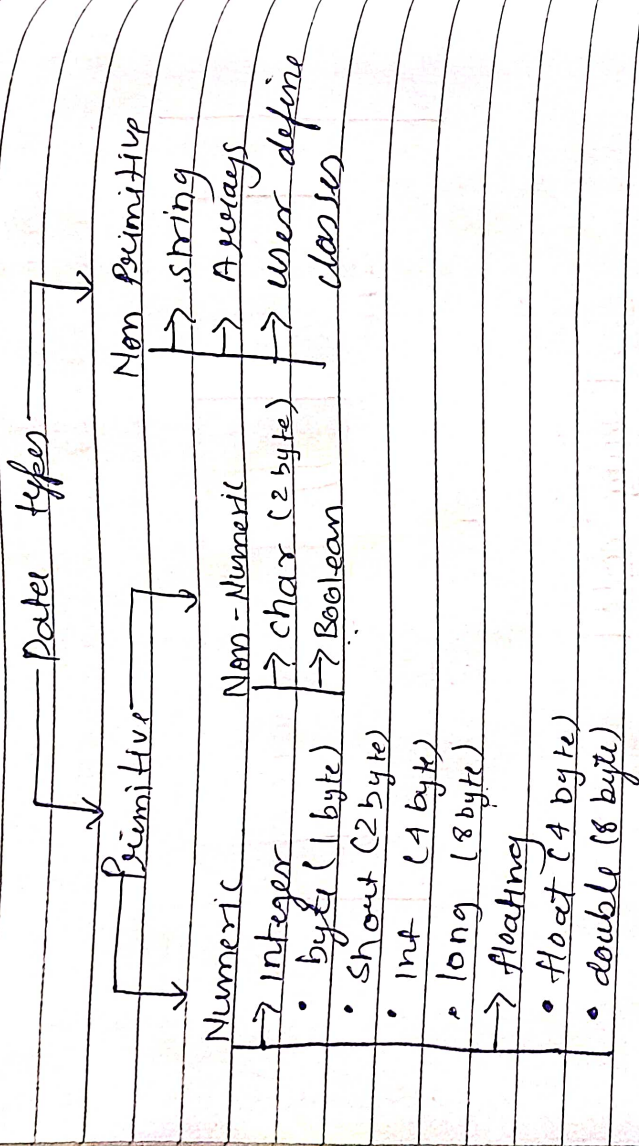 Data types
Primitive
Non Primitive
Numeric
→ Integer
• byte (1 byte)
• Short (2 byte)
• Int (4 byte)
• long (8 byte)
→ floating
• float (4 byte)
• double (8 byte)
Non-Numeric
→ Char (2 byte)
→ Boolean
→ String
→ Arrays
→ user define
classes